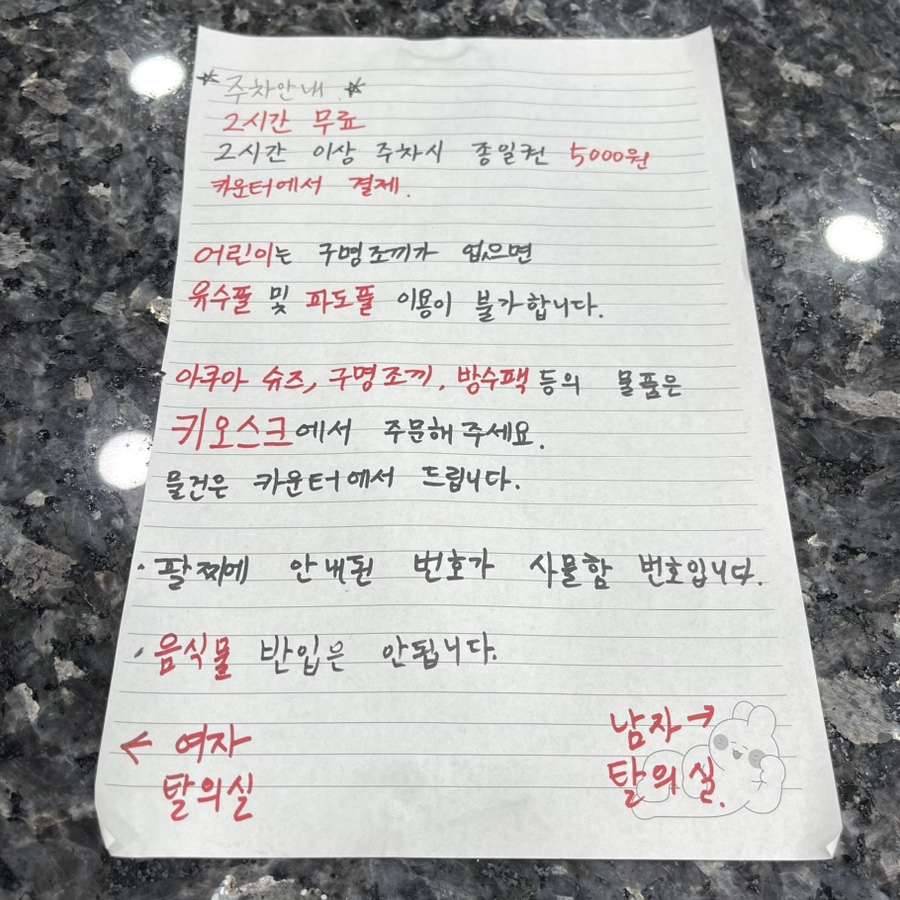 * 주차안내. *
2시간 무료
2시간 이상 주차시 종일권 5000원
카운터에서 결제.
어린이는 구명조끼가 없으면
유수풀 및 파도풀 이용이 불가합니다.
아쿠아 슈즈, 구명조끼, 방수팩 등의 물품은
키오스크에서 주문해 주세요.
물건은 카운터에서 드립니다.
· 팔찌에 안내된 번호가 사물함 번호입니다.
· 음식물 반입은 안됩니다.
← 여자 남자 →
탈의실 탈의실.